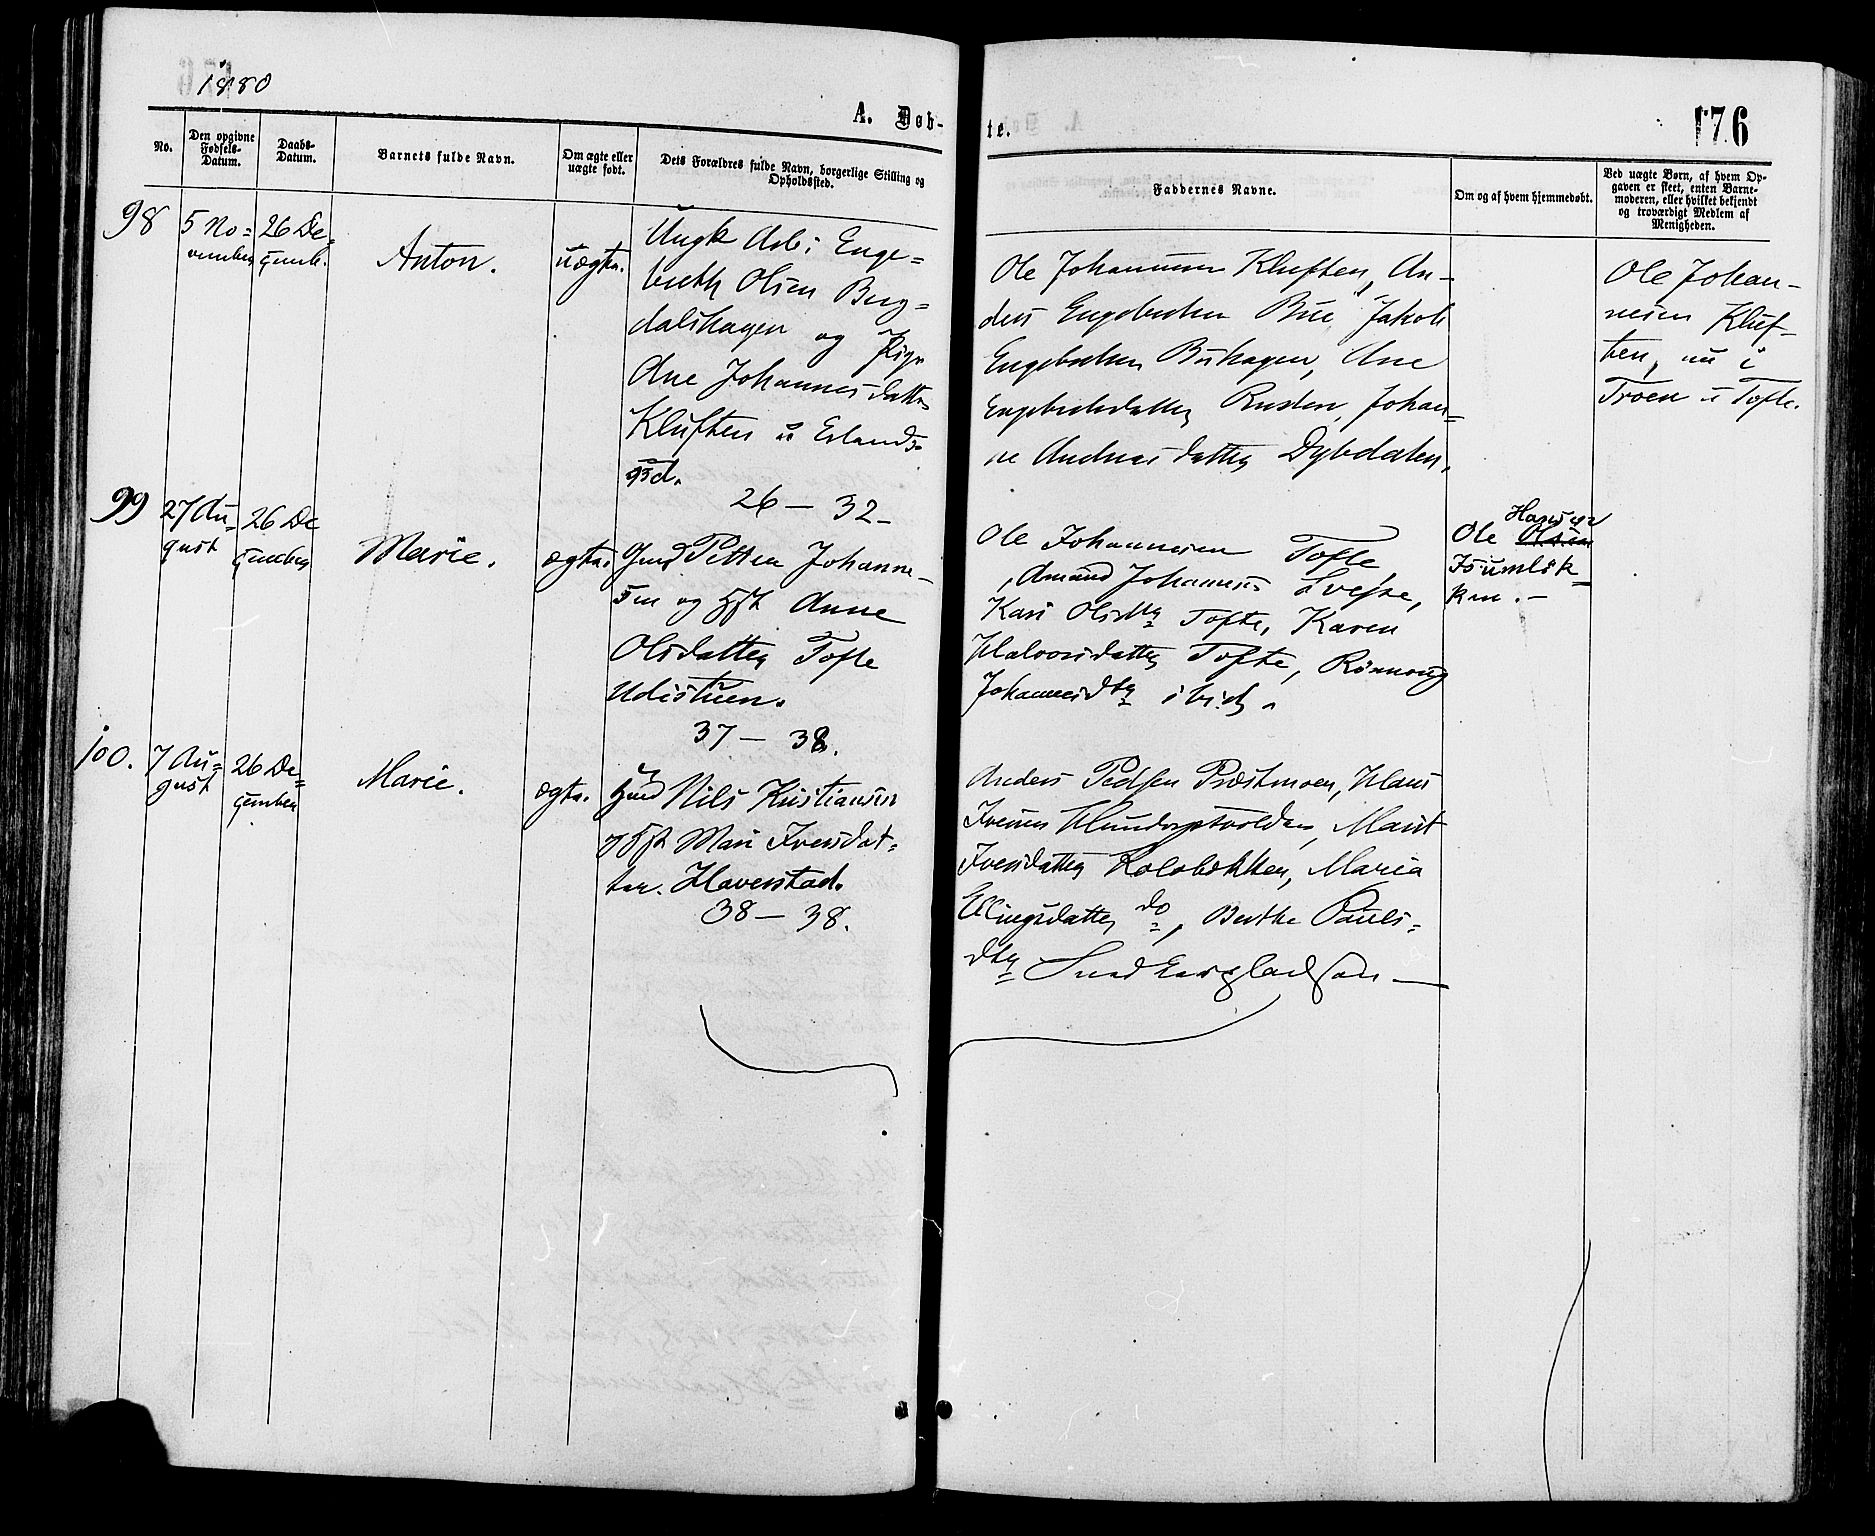 1880
A. Døb-
te.
176
No.
Den opgivne
Fødsels-
Datum.
Daabs-
Datum.
Barnets fulde Navn.
Om ægte eller
uægte født.
Dets Forældres fulde Navn, borgerlige Stilling og
Opholdssted.
Faddernes Navne.
Om og af hvem hjemmedøbt.
Ved uægte Børn, af hvem Op-
gaven er skeet, enten Barne-
moderen, eller hvilket bekjendt
og troværdigt Medlem af
Menigheden.
98
5 No=
vember
26 De=
cemb.
Anton.
uægte.
Ungk Arb: Enge=
breth Olsen Berg=
dalshagen og Pige
Ane Johannesdatter
Kluften u Erlands-
26 — 32 -
Ole Johannesen Kluften, An-
ders Engebretsen Bue, Jakob
Engebretsen Buhagen, Ane
Engebretsdatter Rusten, Johan=
ne Andreasdatter Dybdalen.
Ole Johan-
nesen Kluf-
ten, nu i
Troen u Tofte.
99
27 Au=
gust
26 De
cember
Marie.
ægte.
Gmd Petter Johanne-
sen og Hst Anne
Olsdatter Tofte
Udistuen.
37 — 38.
Ole Johannesen Tofte
, Amund Johannesen
Kari Olsdtr Tofte, Karen
Halvorsdatter Tofte, Rønnoug
Johannesdtr ibid.
Hansen
Ole Olsen
ken. -
100.
7 Au=
gust
26 De=
cember
Marie.
ægte.
Nils Kristiansen
og Hst Mari Iversdat=
ter Haverstad.
38 — 38.
Anders Pedsen Præstmoen, Hans
Iversen Hundorpvolden, Marit
Iversdatter Kolobækken, Maria
Ellingsdatter do, Berthe Pouls=
dtr